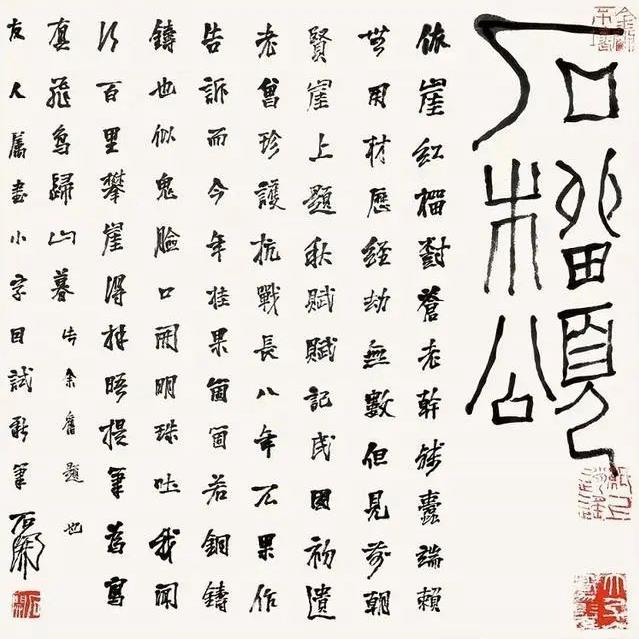 石榴頌
依崖紅榴對蒼老幹蠹端賴
無用材歷經劫無數但見前朝
賢崖上題秋賦賦記民國初遺
老曾珍護抗戰長八年不果作
告訴而今年挂果箇箇若銅鑄
鑄也似鬼臉口開明珠吐我聞
行百里攀崖得相晤提筆為寫
真飛鳥歸山暮 此余舊題也
友人屬書小字因試新筆 石開